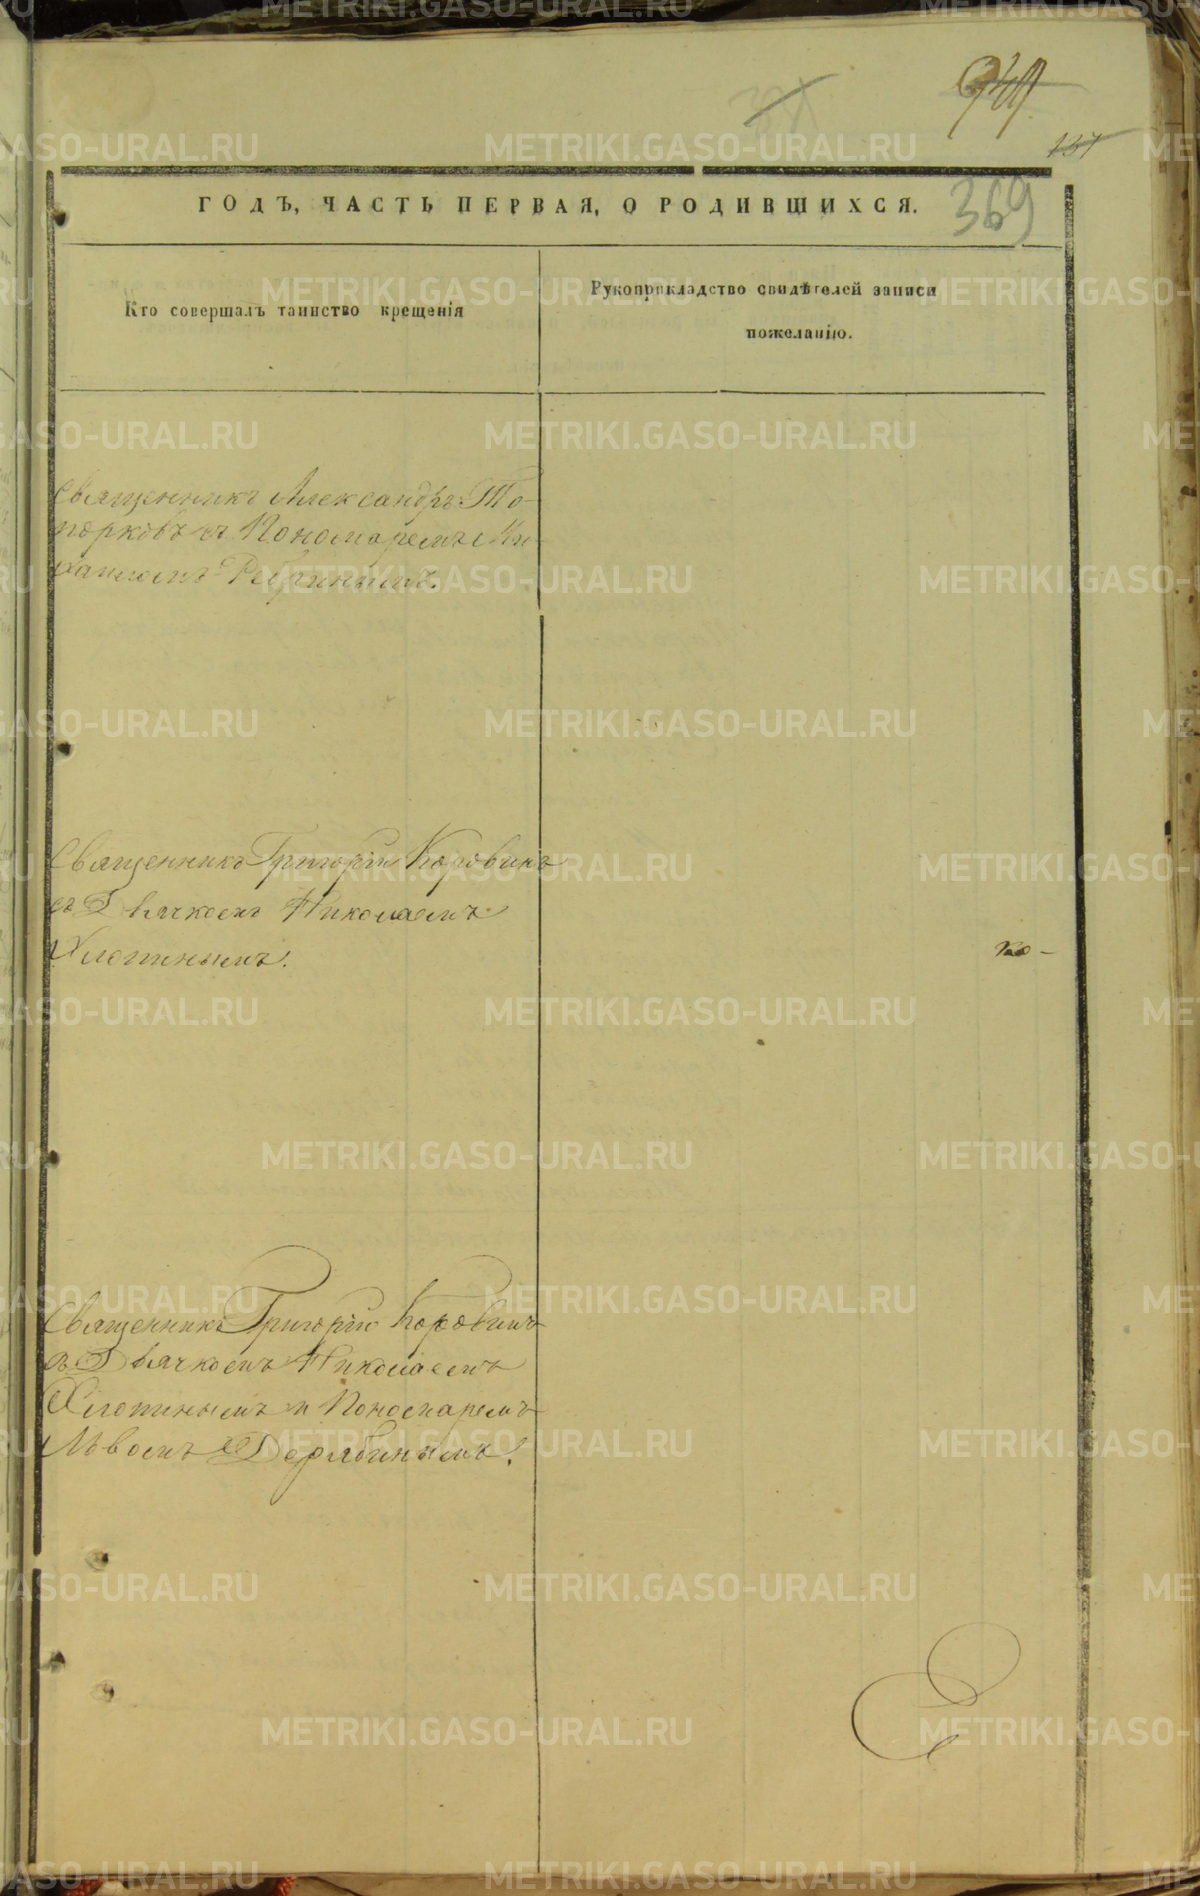 349
137
369
ГОДЪ, ЧАСТЬ ПЕРВАЯ, О РОДИВШИХСЯ.
Кто совершалъ таинство крещенія
Рукоприкладство свидѣтелей записи
пожеланію.
Священникъ Александръ То-
порковъ съ Пономаремъ Ми-
хаиломъ
Священникъ Григорій Коровинъ
съ Дьячкомъ Николаемъ
Хлопинымъ.
ко-
Священникъ Григорій Коровинъ
съ Дьячкомъ Николаемъ
Хлопинымъ и Пономаремъ
Львомъ Дерябинымъ.
METRIKI.GASO-URAL.RU